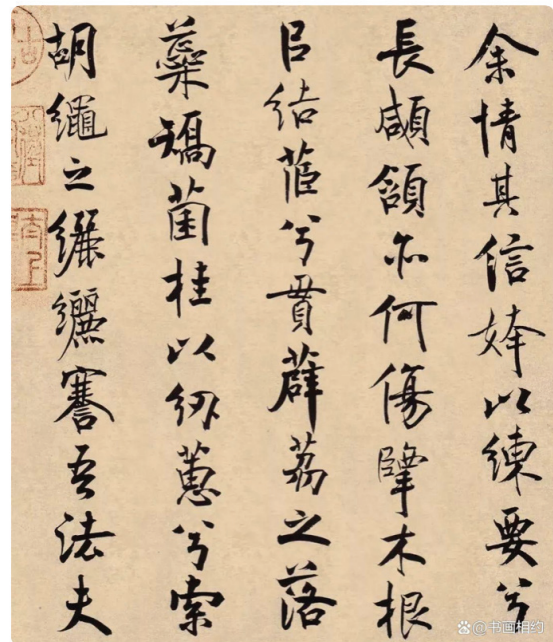 余情其信姱以練要兮
長顑頷亦何傷擥木根
㠯結茝兮貫薜荔之落
蘂矯菌桂以紉蕙兮索
胡繩之纚纚謇吾法夫
@书画相约